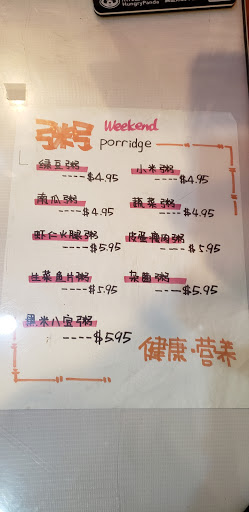 HungryPanda
粥 Weekend
porridge
绿豆粥 小米粥
----$4.95 ----$4.95
南瓜粥 蔬菜粥
----$4.95 ----$4.95
虾仁火腿粥 皮蛋瘦肉粥
----$5.95 ----$5.95
生菜鱼片粥 杂菌粥
----$5.95 ----$5.95
黑米八宝粥
----$5.95
健康·营养